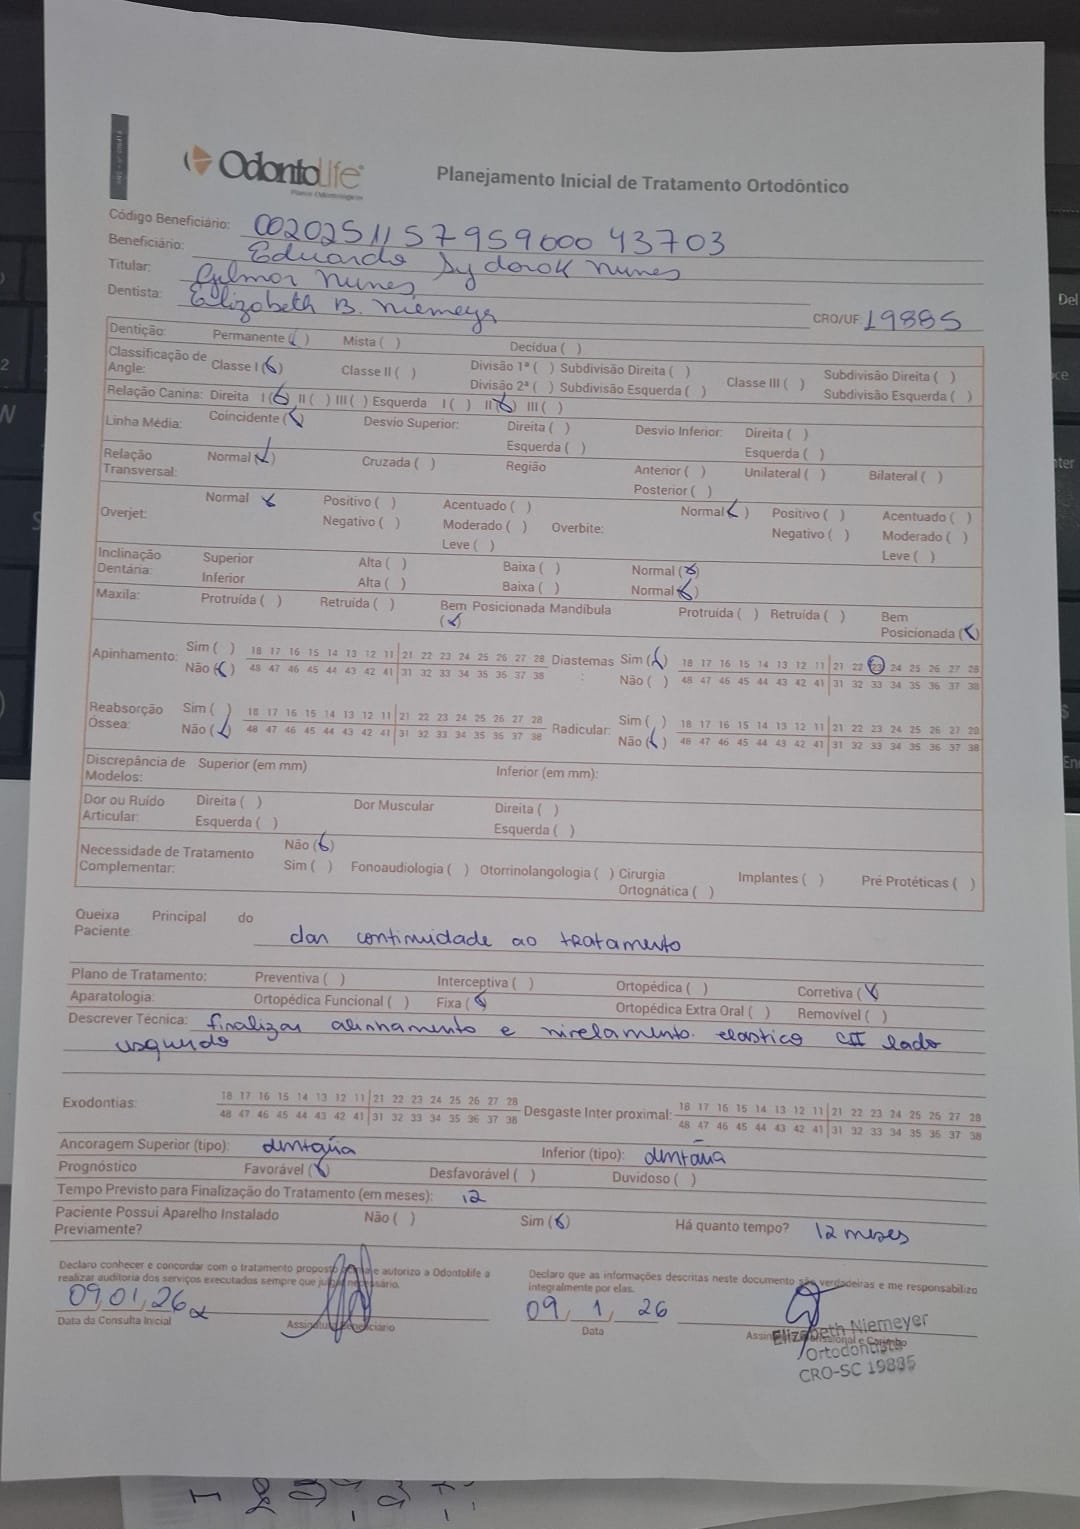 OdontoLife
Planos Odontológicos
Planejamento Inicial de Tratamento Ortodôntico
Código Beneficiário: 00202511579596000 43703
Beneficiário: Eduardo Sydorok Nunes
Titular: Gilmar Nunes
Dentista: Elizabeth B. Niemeyer CRO/UF: 19885
Dentição: Permanente ( ) Mista ( ) Decídua ( )
Classificação de Angle: Classe I (x) Classe II ( ) Divisão 1ª ( ) Subdivisão Direita ( ) Classe III ( ) Subdivisão Direita ( )
Divisão 2ª ( ) Subdivisão Esquerda ( ) Subdivisão Esquerda ( )
Relação Canina: Direita I (x) II ( ) III ( ) Esquerda I ( ) II (x) III ( )
Linha Média: Coincidente (x) Desvio Superior: Direita ( ) Desvio Inferior: Direita ( )
Esquerda ( ) Esquerda ( )
Relação Transversal: Normal (x) Cruzada ( ) Região Anterior ( ) Unilateral ( ) Bilateral ( )
Posterior ( )
Overjet: Normal x Positivo ( ) Acentuado ( ) Overbite: Normal (x) Positivo ( ) Acentuado ( )
Negativo ( ) Moderado ( ) Negativo ( ) Moderado ( )
Leve ( ) Leve ( )
Inclinação Dentária: Superior Alta ( ) Baixa ( ) Normal (x)
Inferior Alta ( ) Baixa ( ) Normal (x)
Maxila: Protruída ( ) Retruída ( ) Bem Posicionada (x) Mandíbula Protruída ( ) Retruída ( ) Bem Posicionada (x)
Apinhamento: Sim ( ) 18 17 16 15 14 13 12 11 21 22 23 24 25 26 27 28 Diastemas: Sim (x) 18 17 16 15 14 13 12 11 21 22 23 24 25 26 27 28
Não (x) 48 47 46 45 44 43 42 41 31 32 33 34 35 36 37 38 Não ( ) 48 47 46 45 44 43 42 41 31 32 33 34 35 36 37 38
Reabsorção Óssea: Sim ( ) 18 17 16 15 14 13 12 11 21 22 23 24 25 26 27 28 Radicular: Sim ( ) 18 17 16 15 14 13 12 11 21 22 23 24 25 26 27 28
Não (x) 48 47 46 45 44 43 42 41 31 32 33 34 35 36 37 38 Não (x) 48 47 46 45 44 43 42 41 31 32 33 34 35 36 37 38
Discrepância de Modelos: Superior (em mm) Inferior (em mm):
Dor ou Ruído Articular: Direita ( ) Dor Muscular Direita ( )
Esquerda ( ) Esquerda ( )
Necessidade de Tratamento Complementar: Não (x)
Sim ( ) Fonoaudiologia ( ) Otorrinolangologia ( ) Cirurgia Ortognática ( ) Implantes ( ) Pré Protéticas ( )
Queixa Principal do Paciente: dar continuidade ao tratamento
Plano de Tratamento: Preventiva ( ) Interceptiva ( ) Ortopédica ( ) Corretiva (x)
Aparatologia: Ortopédica Funcional ( ) Fixa (x) Ortopédica Extra Oral ( ) Removível ( )
Descrever Técnica: finalizar alinhamento e nivelamento. elastico CII lado
esquerdo
Exodontias: 18 17 16 15 14 13 12 11 21 22 23 24 25 26 27 28 Desgaste Inter proximal: 18 17 16 15 14 13 12 11 21 22 23 24 25 26 27 28
48 47 46 45 44 43 42 41 31 32 33 34 35 36 37 38 48 47 46 45 44 43 42 41 31 32 33 34 35 36 37 38
Ancoragem Superior (tipo): dentária Inferior (tipo): dentária
Prognóstico Favorável (x) Desfavorável ( ) Duvidoso ( )
Tempo Previsto para Finalização do Tratamento (em meses): 12
Paciente Possui Aparelho Instalado Previamente? Não ( ) Sim (x) Há quanto tempo? 12 meses
Declaro conhecer e concordar com o tratamento proposto acima e autorizo a Odontolife a
realizar auditoria dos serviços executados sempre que julgar necessário.
Declaro que as informações descritas neste documento são verdadeiras e me responsabilizo
integralmente por elas.
09,01,26 x
Data da Consulta Inicial Assinatura Beneficiário
09, 1, 26
Data
Elizabeth Niemeyer
Ortodontista
CRO-SC 19885